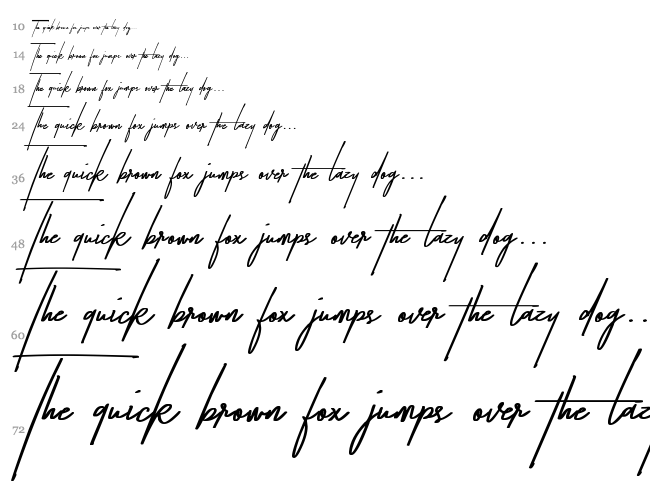 10 The quick brown fox jumps over the lazy dog...
14 The quick brown fox jumps over the lazy dog...
18 The quick brown fox jumps over the lazy dog...
24 The quick brown fox jumps over the lazy dog...
36 The quick brown fox jumps over the lazy dog...
48 The quick brown fox jumps over the lazy dog...
60 The quick brown fox jumps over the lazy dog..
72 The quick brown fox jumps over the laz